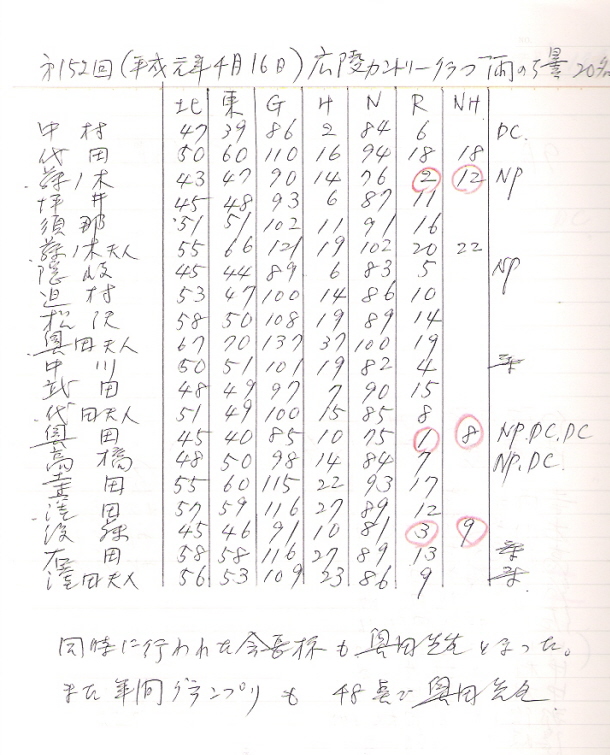 第152回(平成元年4月16日)広陵カントリークラブ 雨のち曇 20名
北 東 G H N R NH
中村 47 39 86 2 84 6 DC.
代田 50 60 110 16 94 18 18
藤ノ木 43 47 90 14 76 2 12 NP
坪井 45 48 93 6 87 11
須那 51 51 102 11 91 16
藤ノ木夫人 55 66 121 19 102 20 22
隠岐 45 44 89 6 83 5 NP
迫村 53 47 100 14 86 10
松沢 58 50 108 19 89 14
奥田夫人 67 70 137 37 100 19
中川 50 51 101 19 82 4
武田 48 49 97 7 90 15
代田夫人 51 49 100 15 85 8
奥田 45 40 85 10 75 1 8 NP.DC.DC
高橋 48 50 98 14 84 7 NP.DC.
田 55 60 115 22 93 17
窪田 57 59 116 27 89 12
後藤 45 46 91 10 81 3 9
田 58 58 116 27 89 13
窪田夫人 56 53 109 23 86 9
同時に行われた会長杯も奥田先生となった。
また年間グランプリも 48点で奥田先生